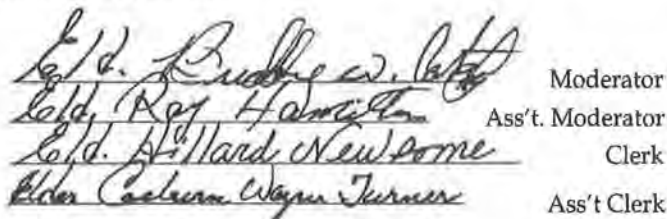 Eld. Buddy W. Moderator
Eld. Ray Hamilton Ass't. Moderator
Eld. Hillard Newsome Clerk
Elder Wayne Turner Ass't Clerk